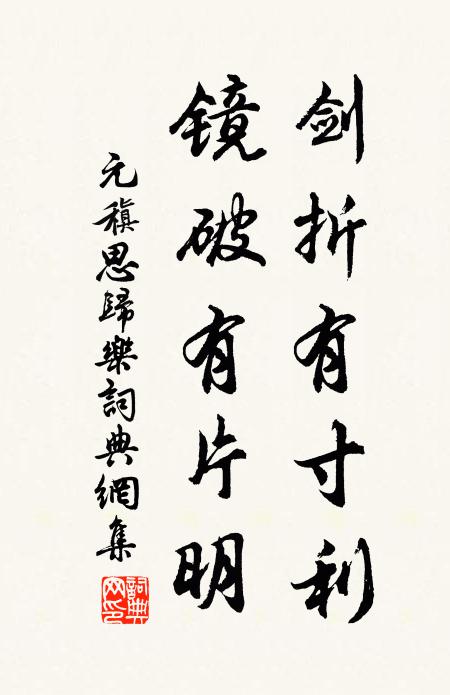 剑折有寸利
镜破有片明
元稹思歸樂詞典網集
詞典
网印